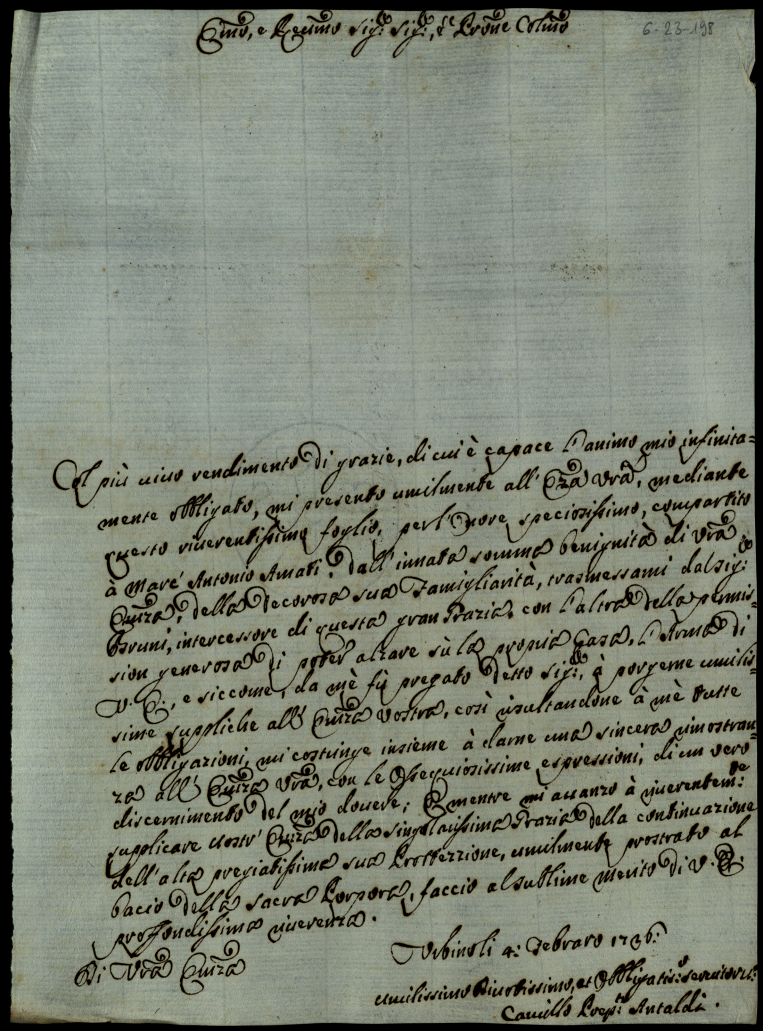 Emo, e Rermo Sig.r Sig.r, e Prone Colmo
6-23-198
Col più uiuo rendimento di grazie, di cui è capace l'animo mio infinita=
mente obbligato, mi presento umilmente all' Emza Vrã, mediante
questo riuerentissimo foglio, per l'onore speciosissimo, compartito
à Marc' Antonio Amati, dall' innata somma benignità di Vrã
Emza, della decorosa sua Famigliarità, trasmessami dal Sig.r
Bruni, intercessore di questa gran Grazia, con l'altra della permis=
sion generosa di poter alzare sù la propria Casa, l'Arma di
V. E., e siccome, da mè fù pregato detto Sig.r, à porgerne umilis=
sime suppliche all' Emza Vostra, così risultandone à mè tutte
le obbligazioni, mi costringe insieme à darne una sincera rimostran=
za all' Emza Vrã, con le ossequiosissime espressioni, di un vero
discernimento del mio douere; E mentre mi auanzo à riuerentem.te
supplicare Vostr' Emza della singolarissima Grazia della continuazione
dell' alta pregiatissima sua Protezzione, umilmente prostrato al
bacio della sacra Porpora, faccio al sublime merito di V. E.
profondissima riuerenza.
Di Vrã Emza
Urbino li 4: Febraro 1736:
Umilissimo Diuotissimo, et Obbligatis.o Seruitore
Camillo Antaldi.